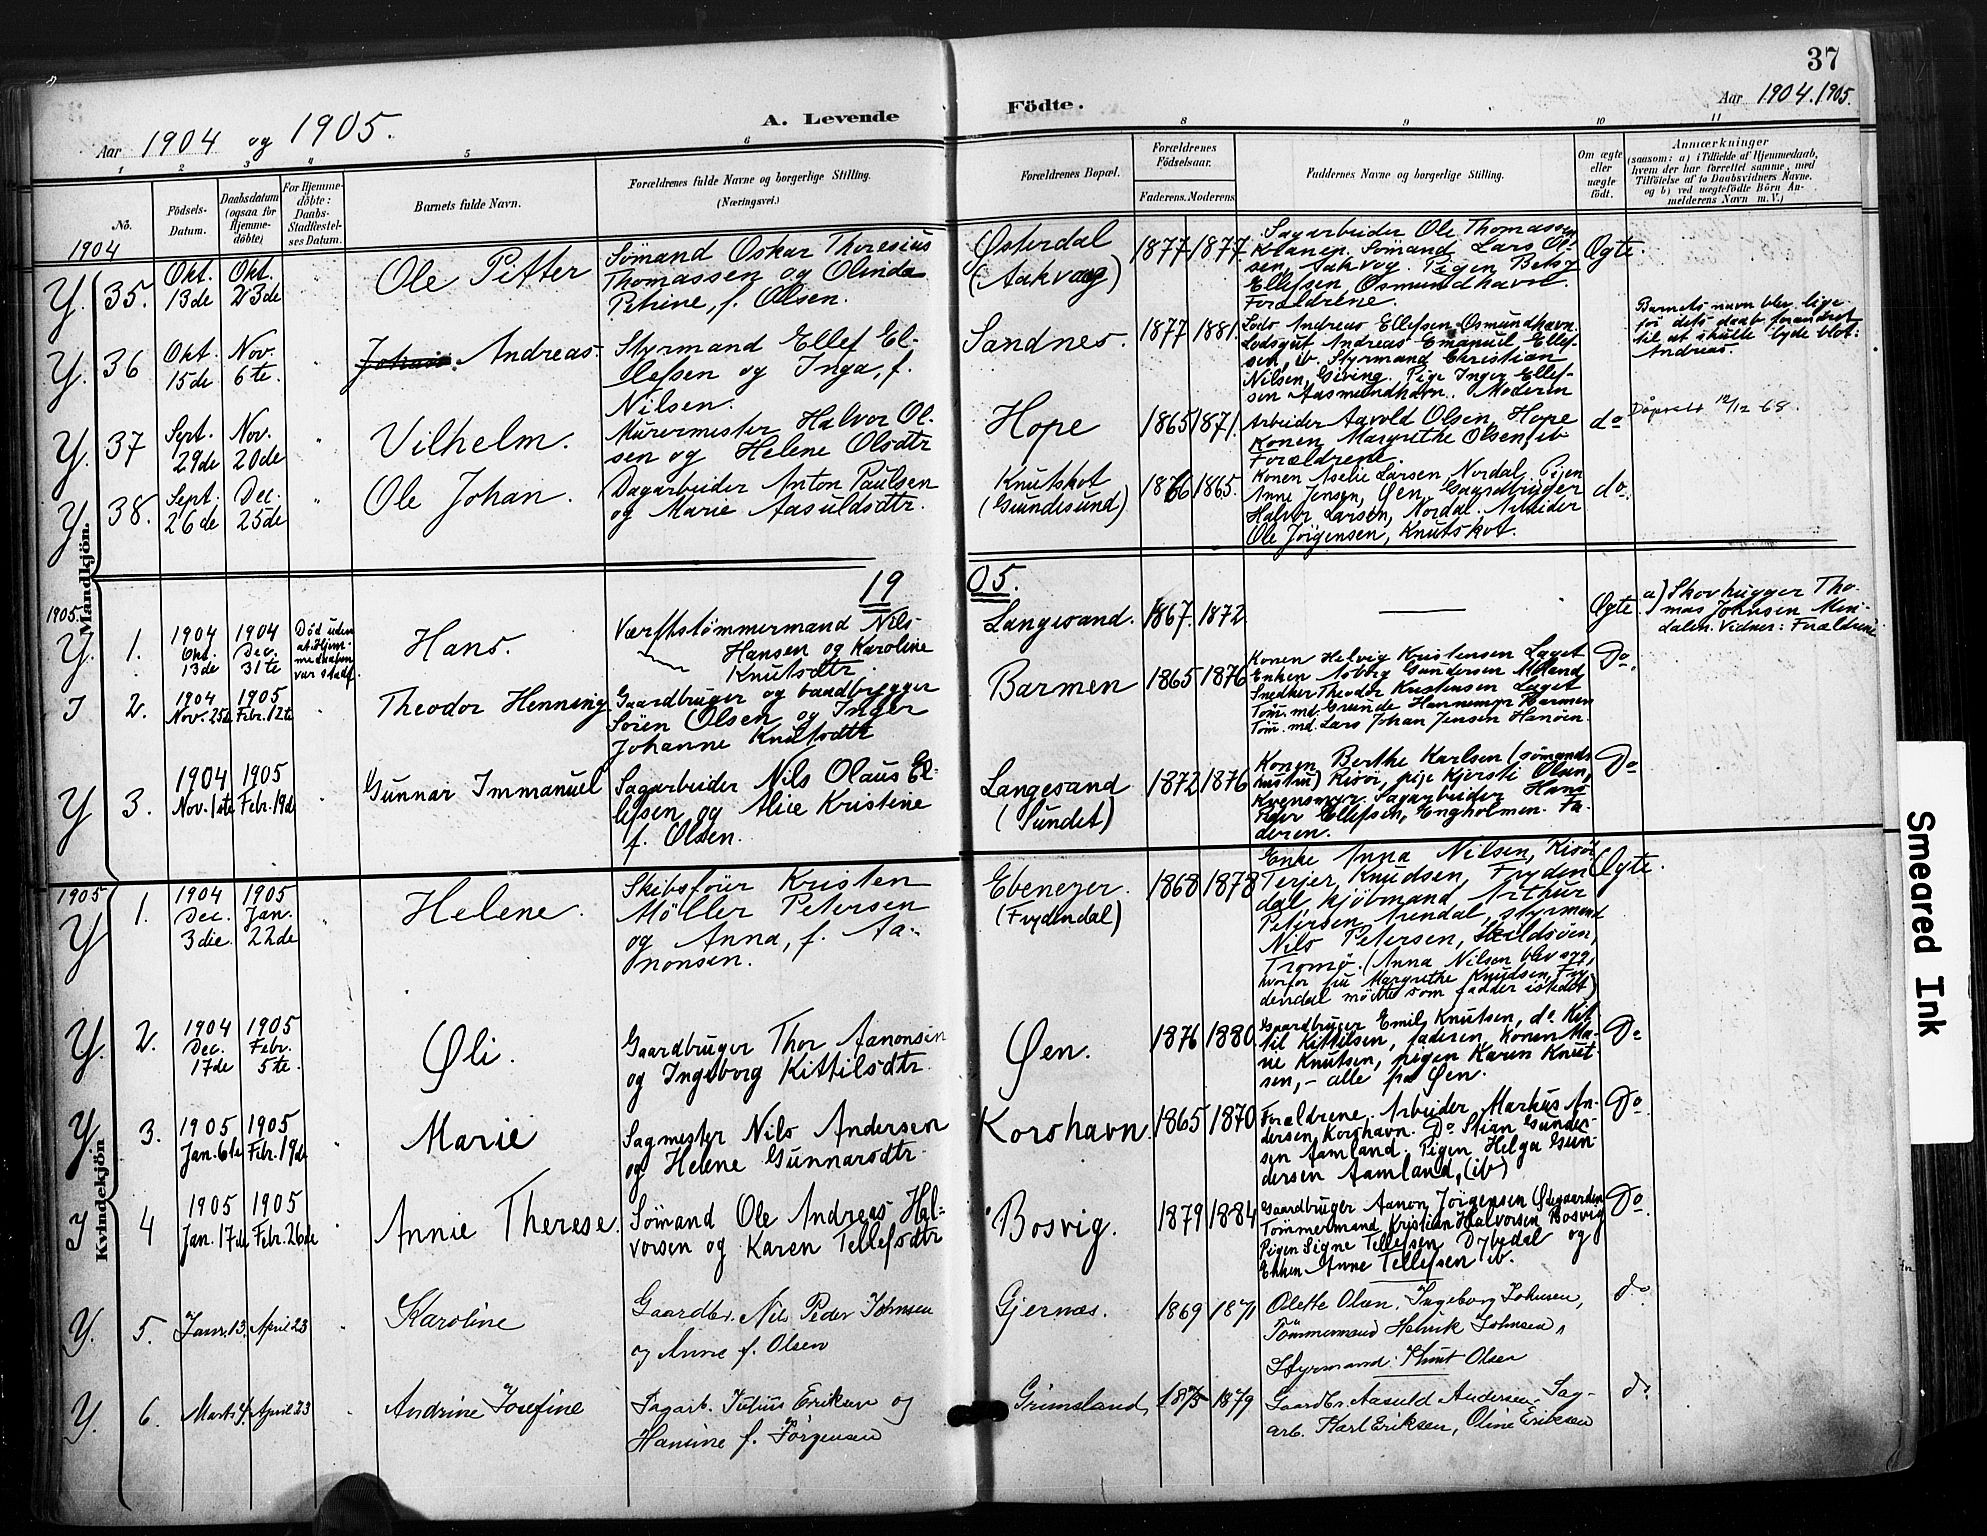 37
Aar 1904 og 1905.
A. Levende
Födte.
Aar 1904. 1905.
1 2 3 4 5 6 8 9 10 11
No.
Födsels-Datum.
Daabsdatum (ogsaa for Hjemme-döbte)
For Hjemme-döbte: Daabs-Stadfæstel-ses Datum.
Barnets fulde Navn.
Forældrenes fulde Navne og borgerlige Stilling. (Næringsvei.)
Forældrenes Bopæl.
Forældrenes Födselsaar.
Faderens. Moderens
Faddernes Navne og borgerlige Stilling.
Om ægte eller uægte födt.
Anmærkninger
(saasom: a) i Tilfælde af Hjemmedaab,
hvem der har forrettet samme, med
Tilföielse af to Daabsvidners Navne,
og b) ved uægtefödte Börn An-
melderens Navn m. V.)
1904
Mandkjön.
Y. 35. Okt. 13de Okt. 23de " Ole Petter
Sømand Oskar Theresius
Thomassen og Olinda
Petrine, f. Olsen.
Østerdal
(Aakvaag)
1877 1877
Sagarbeider Ole Thomassen
Klanen. Sømand Lars Ol-
sen, Aakvog. Pigen Betsy
Ellefsen, Osmundhavn.
Forældrene.
Øgte.
Y. 36 Okt. 15de Nov. 6te. " Johan Andreas.
Styrmand Ellef El-
lefsen og Inga, f.
Nilsen.
Sandnes.
1877 1881.
Lods Andreas Ellefsen Osmundhavn.
Lodsgut Andreas Emanuel Ellef-
sen, ib. Styrmand Christian
Nilsen, Giving. Pige Inger Ellef-
sen Aasmundhavn. Moderen
Barnets navn blev lige
før dets daab forandret
til at skulle lyde blot:
Andreas.
Y. 37 Sept. 29de Nov. 20de " Vilhelm.
Murermester Halvor Ol-
sen og Helene Olsdtr
Hope
1865 1871.
Arbeider Aavold Olsen, Hope
Konen Margrethe Olsen, ib
Forældrene.
do
Dåpsatt 12/12 68.
Y. 38. Sept. 26de Dec. 25de " Ole Johan.
Dagarbeider Anton Paulsen
og Marie Aasuldsdtr.
Knutskot
(Grundesund)
1866 1865.
Konen Aselie Larsen Nordal, Pigen
Anne Jensen, Øen, Gaardbruger
Halvor Larsen, Nordal. Arbeider
Ole Jørgensen, Knutskot.
do.
19 05.
1905.
Y. 1. 1904 Okt. 13de 1904 Dec. 31te
Død uden
at Hjem-
medaaben
var stadf.
Hans.
Værftstømmermand Nils
Hansen og Karoline
Knutsdtr.
Langesand.
1867. 1872
Øgte
a) Skovhugger Tho-
mas Johnsen Men-
dalen. Vidner: Forældrene
J 2. 1904 Nov. 25de 1905 Febr. 12te Theodor Henning
Gaardbruger og baadbygger
Søren Olsen og Inger
Johanne Knutsdtr
Barmen
1865 1876
Konen Helvig Kristensen Laget
Enken Asborg Gundersen Meland
Snedker Theodor Kristensen Laget
Tøm. md. Grunde Hannemyr Barmen
Tøm. md. Lars Johan Jensen Hanöen.
Do.
Y 3. 1904 Nov. 1ste 1905 Febr. 19de " Gunnar Immanuel
Sagarbeider Nils Olaus El-
lefsen og Alice Kristine
f. Olsen.
Langesand
(Sundet)
1872 1876
Konen Berthe Karlsen (sømands
hustru) Risör, pige Kjersti Olsen,
Kvensmyr. Sagarbeider Hans
Peder Ellefsen, Engholmen. Fa-
deren.
Do
1905
Kvindekjön
Y 1. 1904 Dec. 3die. 1905 Jan. 22de " Helene.
Skibsfører Kristen
Möller Petersen
og Anna, f. Aa-
nonsen.
Ebenezer.
(Frydendal)
1868 1878
Enke Anna Nilsen, Risör
Terjer Knudsen, Fryden
dal kjöbmand Arthur
Petersen, Arendal, styrmand
Nils Petersen,
Tromö. (Anna Nilsen blev syg,
hvorfor fru Margrethe Knudsen, Fry
dendal mödte som fadder istedet)
Øgte.
Y. 2. 1904 Dec. 17de 1905 Febr. 5te. Øli.
Gaardbruger Thor Aanonsen
og Ingeborg Kittilsdtr.
Øen.
1876 1880
Gaardbruger Emil Knutsen, do Kit-
til Kittilsen, faderen, Konen Ma-
rie Knutsen, pigen Karen Knut-
sen, - alle fra Øen.
Do
Y 3. 1905 Jan. 6te 1905 Febr. 19de " Marie
Sagmester Nils Andersen
og Helene Gunnarsdtr.
Korshavn.
1865 1870
Forældrene. Arbeider Markus An-
dersen Korshavn. Do Stian Gunder-
sen Aamland. Pigen Helga Gun-
dersen Aamland, (ib)
Do
J 4 1905 Jan. 17de 1905 Febr. 26de " Annie Therese.
Sømand Ole Andreas Hal-
vorsen og Karen Tellefsdtr
Bosvig.
1879 1884
Gaardbruger Aanon Jörgensen Ødegaarden
Tømmermand Kristian Halvorsen Bosvig
Pigen Signe Tellefsen Dybedal og
Enken Anne Tellefsen ib.
Do.
Y. 5. Janr. 13. April 23 " Karoline
Gaardbr. Nils Peder Johnsen
og Anne f. Olsen
Gjernæs.
1869 1871
Odette Olsen, Ingeborg Johnsen,
Tömmermand Henrik Johnsen,
Styrmand Knut Olsen
do
Y. 6. Marts 4. April 23 " Andrine Josefine
Sagarb. Julius Eriksen og
Hansine f. Jörgensen
Grimsland,
1875 1879
Gaardbr. Aasuld Andersen, Sag-
arb. Karl Eriksen, Oline Eriksen
do
Smeared Ink